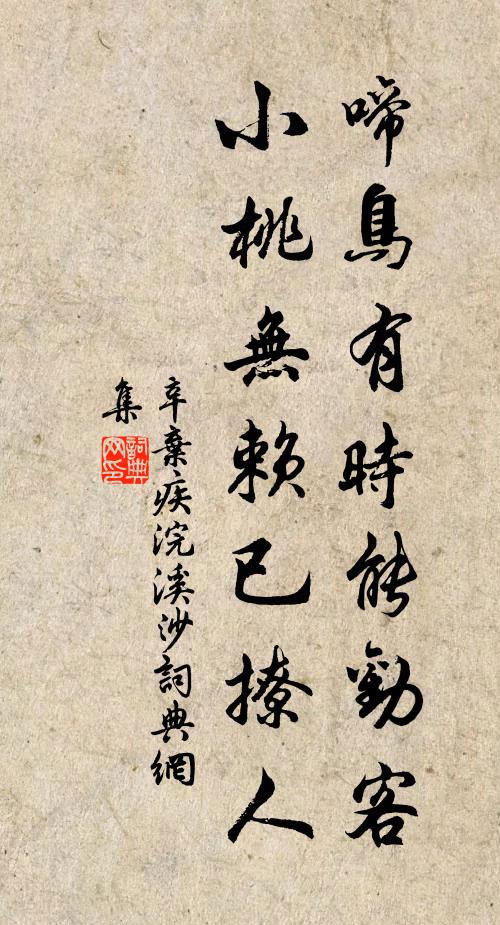 啼鳥有時能勸客
小桃無賴已撩人
辛棄疾浣溪沙詞典網
集
詞典
网印